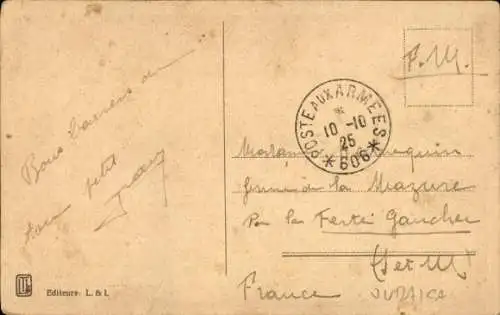 Bons baisers du
ton petit
F.M.
POSTE AUX ARMEES
*
10 -10
25
* 606 *
Madame
de la Mazure
La Ferté Gaucher
(S et M)
France
Editeurs- L. & L